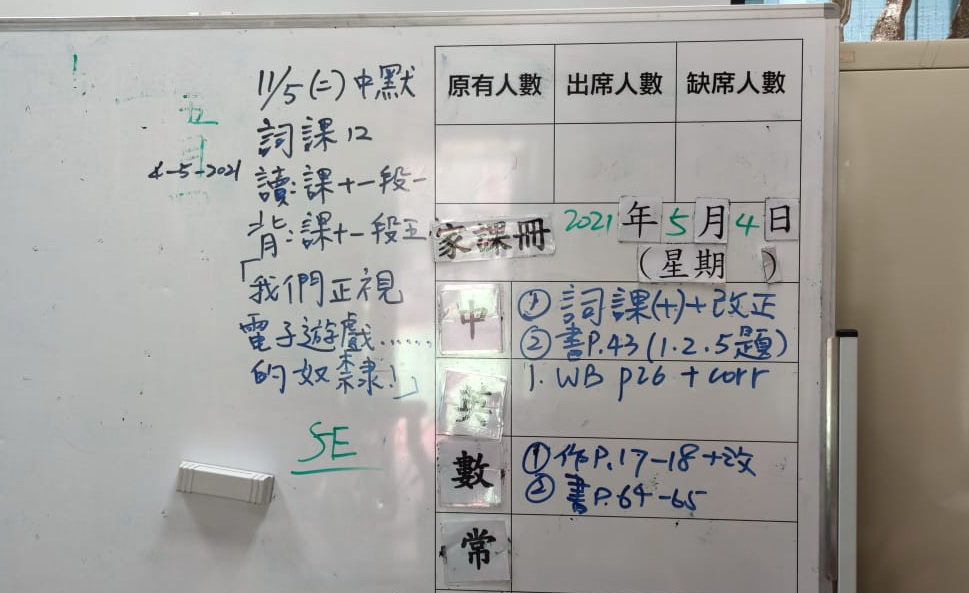 11/5(二)中默
詞課12
讀:課十一段一
背:課十一段五
「我們正視
電子遊戲......
的奴隸!」
5E
五
月
4-5-2021
原有人數 出席人數 缺席人數
家課冊 2021年5月4日
(星期 )
中 ① 詞課(十)+改正
② 書P.43(1.2.5題)
英 1. WB p26 + corr
數 ① 作P.17-18+改
② 書P.64-65
常